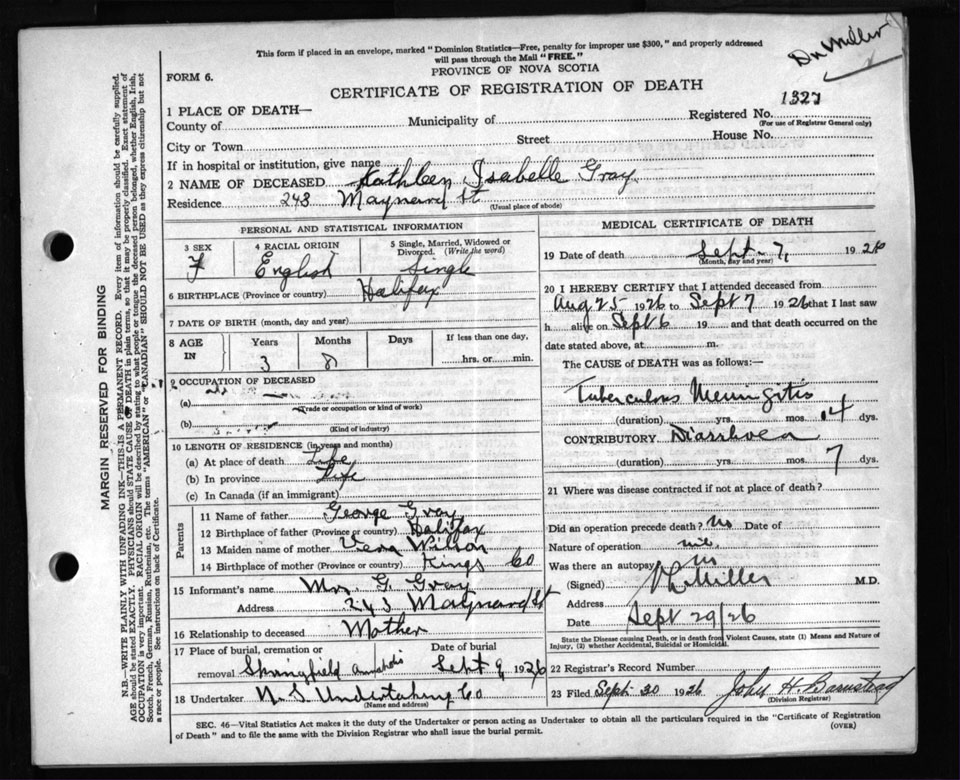 Dr Miller
This form if placed in an envelope, marked "Dominion Statistics—Free, penalty for improper use $300," and properly addressed
will pass through the Mail "FREE."
PROVINCE OF NOVA SCOTIA
FORM 6.
CERTIFICATE OF REGISTRATION OF DEATH
1 PLACE OF DEATH—
Registered No. 1327
(For use of Registrar General only)
County of
Municipality of
City or Town
Street
House No.
If in hospital or institution, give name
2 NAME OF DECEASED Kathleen Isabelle Gray
Residence 243 Maynard St
(Usual place of abode)
PERSONAL AND STATISTICAL INFORMATION
3 SEX
F
4 RACIAL ORIGIN
English
5 Single, Married, Widowed or
Divorced. (Write the word)
Single
6 BIRTHPLACE (Province or country) Halifax
7 DATE OF BIRTH (month, day and year)
8 AGE
IN
Years
3
Months
8
Days
If less than one day,
hrs. or min.
9 OCCUPATION OF DECEASED
(a)
(Trade or occupation or kind of work)
(b)
(Kind of industry)
10 LENGTH OF RESIDENCE (in years and months)
(a) At place of death Life
(b) In province Life
(c) In Canada (if an immigrant)
Parents
11 Name of father George Gray
12 Birthplace of father (Province or country) Halifax
13 Maiden name of mother Vera Wilson
14 Birthplace of mother (Province or country) Kings Co
15 Informant's name Mrs. G. Gray
Address 243 Maynard St
16 Relationship to deceased Mother
17 Place of burial, cremation or
Date of burial
removal Springfield Annapolis Sept 9 1926
18 Undertaker N. S. Undertaking Co
(Name and address)
MEDICAL CERTIFICATE OF DEATH
19 Date of death Sept- 7, 1926
(Month, day and year)
20 I HEREBY CERTIFY that I attended deceased from
Aug 25 1926 to Sept 7 1926 that I last saw
h alive on Sept 6 19 and that death occurred on the
date stated above, at m.
The CAUSE of DEATH was as follows:—
Tuberculous Meningitis
(duration) yrs. mos. 14 dys.
CONTRIBUTORY. Diarrhoea
(duration) yrs. mos. 7 dys.
21 Where was disease contracted if not at place of death?
Did an operation precede death? No Date of
Nature of operation
Was there an autopsy
(Signed) Miller M.D.
Address
Date Sept 29/26
State the Disease causing Death, or in death from Violent Causes, state (1) Means and Nature of
Injury, (2) whether Accidental, Suicidal or Homicidal.
22 Registrar's Record Number
23 Filed Sept 30 1926 John H. Barnstead
(Division Registrar)
SEC. 46—Vital Statistics Act makes it the duty of the Undertaker or person acting as Undertaker to obtain all the particulars required in the "Certificate of Registration
of Death" and to file the same with the Division Registrar who shall issue the burial permit.
(OVER)
MARGIN RESERVED FOR BINDING
N.B.—WRITE PLAINLY WITH UNFADING INK—THIS IS A PERMANENT RECORD. Every item of information should be carefully supplied.
AGE should be stated EXACTLY. PHYSICIANS should STATE CAUSE OF DEATH in plain terms, so that it may be properly classified. Exact statement of
OCCUPATION is very important. RACIAL ORIGIN will be described by stating to what people or tongue the deceased person belonged, whether English, Irish,
Scotch, French, German, Russian, Ruthenian, etc. The terms "AMERICAN" or "CANADIAN" SHOULD NOT BE USED as they express citizenship but not
a race or people. See instructions on back of Certificate.